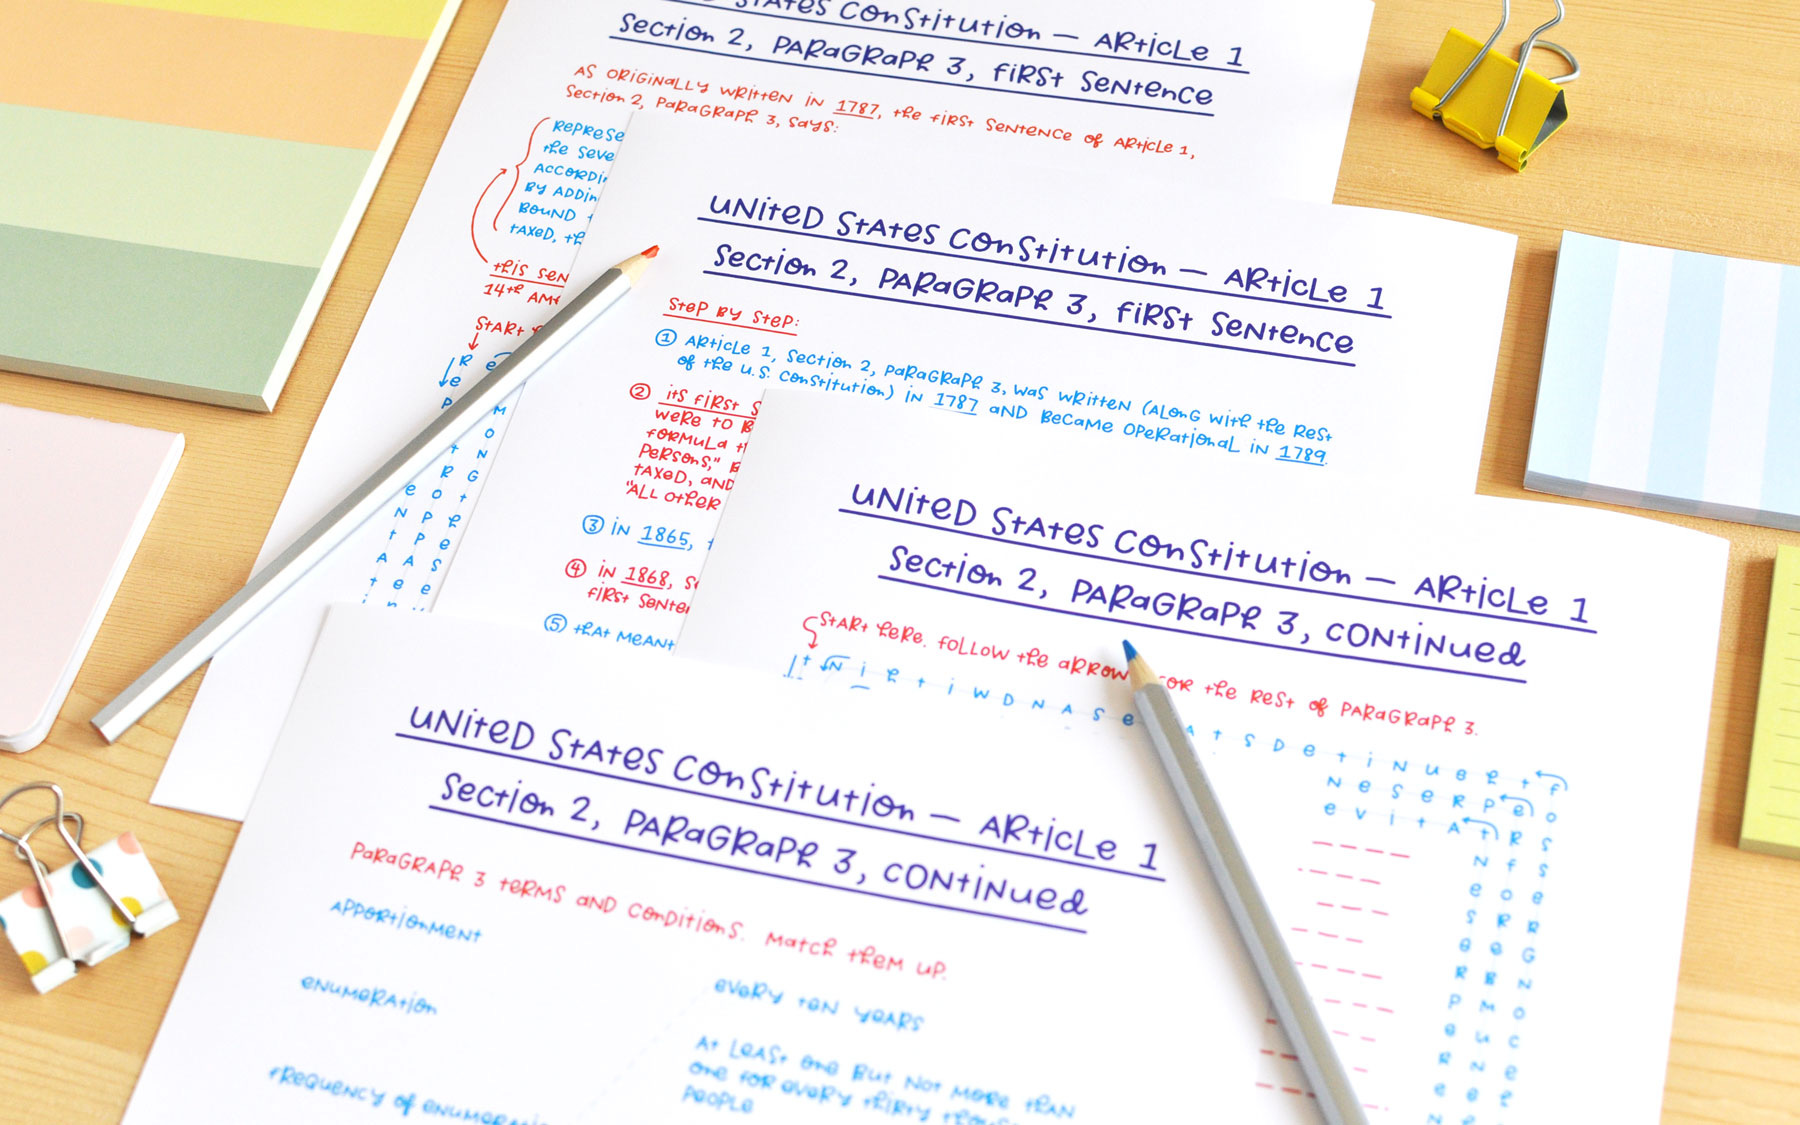 STATES CONSTITUTION — ARTICLE 1
SECTION 2, PARAGRAPH 3, FIRST SENTENCE
AS ORIGINALLY WRITTEN IN 1787, THE FIRST SENTENCE OF ARTICLE 1,
SECTION 2, PARAGRAPH 3, SAYS:
THE
ACCORDI
BY ADDIN
BOUND
TAXED, TH
THIS SEN
14TH AM
START
UNITED STATES CONSTITUTION — ARTICLE 1
SECTION 2, PARAGRAPH 3, FIRST SENTENCE
STEP BY STEP:
① ARTICLE 1, SECTION 2, PARAGRAPH 3, WAS WRITTEN (ALONG WITH THE REST
OF THE U.S. CONSTITUTION) IN 1787 AND BECAME OPERATIONAL IN 1789.
② ITS FIRST S
WERE TO B
FORMULA
PERSONS," B
TAXED, AND
"ALL OTHER
③ IN 1865,
④ IN 1868, S
FIRST SENTE
⑤ THAT MEANT
UNITED STATES CONSTITUTION — ARTICLE 1
SECTION 2, PARAGRAPH 3, CONTINUED
START HERE. FOLLOW THE ARROW FOR THE REST OF PARAGRAPH 3.
T N I H T I W D N A S E A T S D E T I N U E H T F
N E S E R P E O
E V I T A T R S
N F S
E O E
S R R
E E G
R B N
P M O
E U C
R N E
UNITED STATES CONSTITUTION — ARTICLE 1
SECTION 2, PARAGRAPH 3, CONTINUED
PARAGRAPH 3 TERMS AND CONDITIONS. MATCH THEM UP.
APPORTIONMENT
ENUMERATION
EVERY TEN YEARS
FREQUENCY OF ENUMERATI
AT LEAST ONE BUT NOT MORE THAN
ONE FOR EVERY THIRTY THOUS
PEOPLE